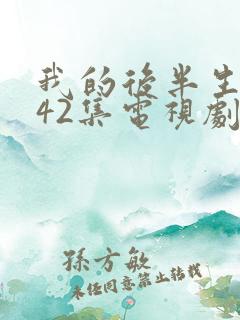 我的後半生
42集電視劇
孫方敏
未经同意禁止转载